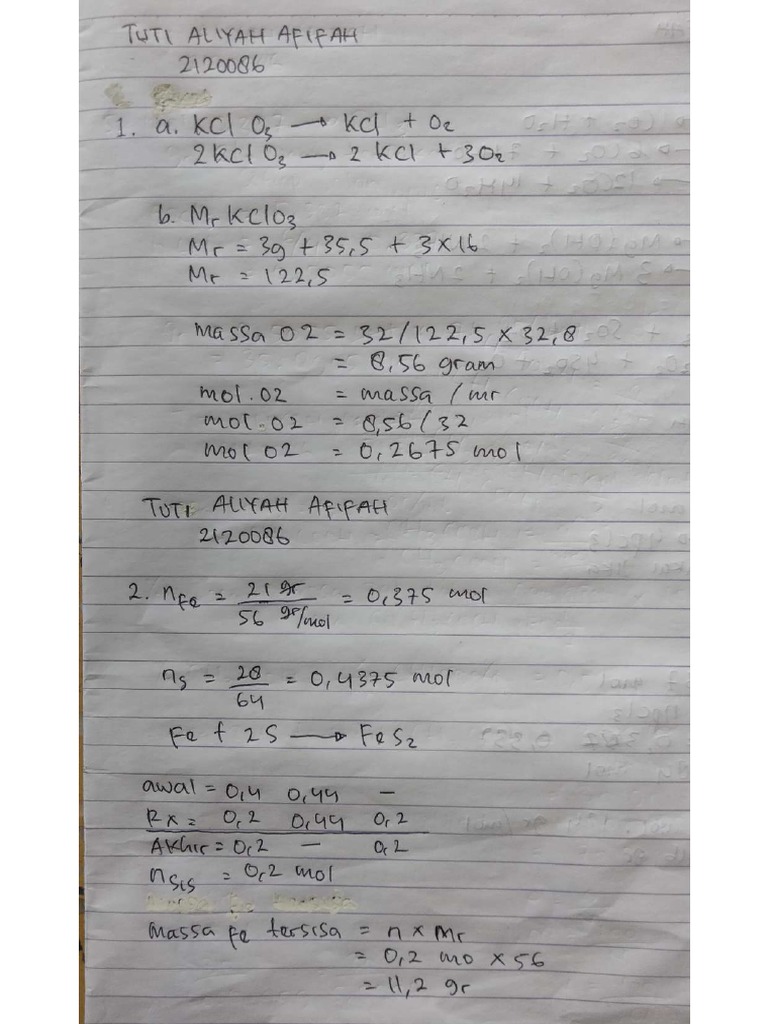 TUTI ALIYAH AFIFAH
2120086
1. a. KClO₃ → KCl + O₂
2KClO₃ → 2 KCl + 3O₂
b. Mr KClO₃
Mr = 39 + 35,5 + 3×16
Mr = 122,5
massa O2 = 32/122,5 × 32,8
= 8,56 gram
mol.O2 = massa / mr
mol.O2 = 8,56/32
mol O2 = 0,2675 mol
TUTI ALIYAH AFIFAH
2120086
2. nFe = 21 gr / 56 gr/mol = 0,375 mol
nS = 28 / 64 = 0,4375 mol
Fe + 2S → FeS₂
awal = 0,4 0,44 –
Rx = 0,2 0,44 0,2
Akhir = 0,2 – 0,2
nSis = 0,2 mol
massa fe tersisa = n × Mr
= 0,2 mo × 56
= 11,2 gr